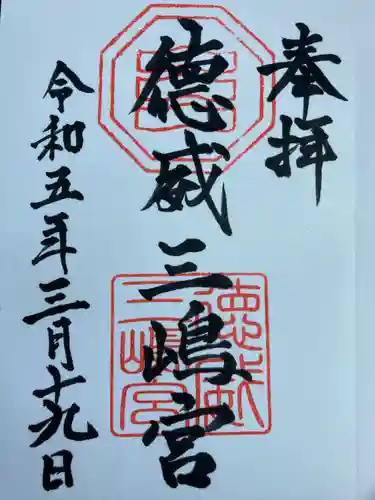 奉拝
德威三嶋宮
令和五年三月十九日
德威三嶋宮